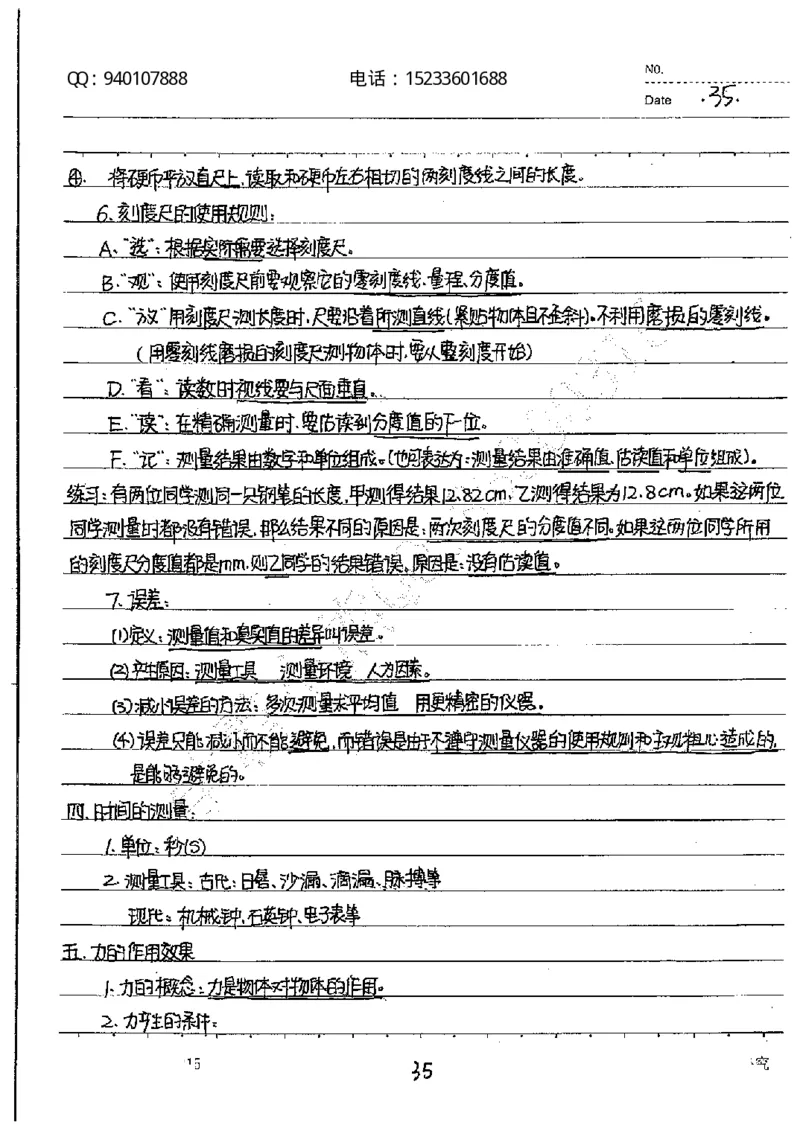 QQ：940107888 电话：15233601688 No.
Date .35.
④. 将硬币平放直尺上,读取和硬币左右相切的两刻度线之间的长度。
6、刻度尺的使用规则：
A、“选”：根据实际需要选择刻度尺。
B.“观”：使用刻度尺前要观察它的零刻度线、量程、分度值。
C.“放”用刻度尺测长度时,尺要沿着所测直线(紧贴物体且不歪斜)。不利用磨损的零刻线。
(用零刻线磨损的刻度尺测物体时,要从整刻度开始)
D.“看”：读数时视线要与尺面垂直。
E.“读”：在精确测量时,要估读到分度值的下一位。
F.“记”：测量结果由数字和单位组成。(也可表达为：测量结果由准确值、估读值和单位组成)。
练习：有两位同学测同一只钢笔的长度,甲测得结果12.82cm,乙测得结果为12.8cm。如果这两位
同学测量时都没有错误,那么结果不同的原因是：两次刻度尺的分度值不同。如果这两位同学所用
的刻度尺分度值都是mm,则乙同学的结果错误。原因是：没有估读值。
7、误差：
(1)定义：测量值和真实值的差异叫误差。
(2)产生原因：测量工具 测量环境 人为因素。
(3)减小误差的方法：多次测量求平均值 用更精密的仪器。
(4)误差只能减小而不能避免,而错误是由于不遵守测量仪器的使用规则和主观粗心造成的,
是能够避免的。
四、时间的测量：
1、单位：秒(S)
2、测量工具：古代：日晷、沙漏、滴漏、脉搏等
现代：机械钟、石英钟、电子表等
五、力的作用效果
1、力的概念：力是物体对物体的作用。
2、力产生的条件：
15 35 究